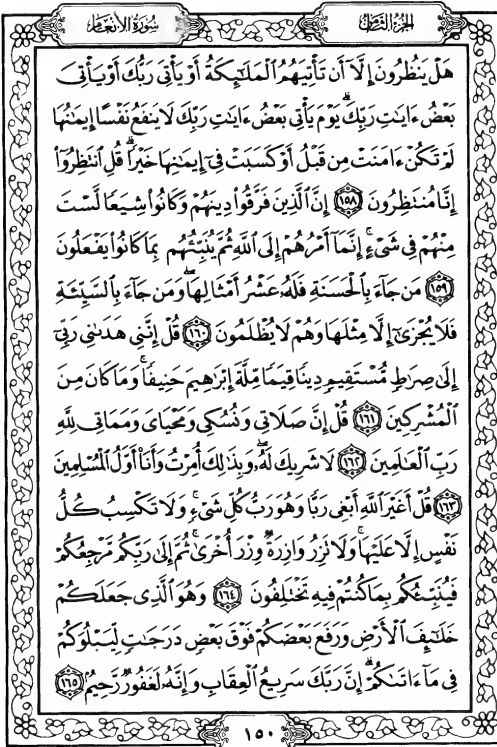 سُورَةُ الأَنْعَام
الجُزْءُ الثَّامِن
هَلْ يَنظُرُونَ إِلَّآ أَن تَأْتِيَهُمُ ٱلْمَلَٰٓئِكَةُ أَوْ يَأْتِىَ رَبُّكَ أَوْ يَأْتِىَ
بَعْضُ ءَايَٰتِ رَبِّكَۗ يَوْمَ يَأْتِى بَعْضُ ءَايَٰتِ رَبِّكَ لَا يَنفَعُ نَفْسًا إِيمَٰنُهَا
لَمْ تَكُنْ ءَامَنَتْ مِن قَبْلُ أَوْ كَسَبَتْ فِىٓ إِيمَٰنِهَا خَيْرًاۗ قُلِ ٱنتَظِرُوٓاْ
إِنَّا مُنتَظِرُونَ ١٥٨ إِنَّ ٱلَّذِينَ فَرَّقُواْ دِينَهُمْ وَكَانُواْ شِيَعًا لَّسْتَ
مِنْهُمْ فِى شَىْءٍۚ إِنَّمَآ أَمْرُهُمْ إِلَى ٱللَّهِ ثُمَّ يُنَبِّئُهُم بِمَا كَانُواْ يَفْعَلُونَ
١٥٩ مَن جَآءَ بِٱلْحَسَنَةِ فَلَهُۥ عَشْرُ أَمْثَالِهَاۖ وَمَن جَآءَ بِٱلسَّيِّئَةِ
فَلَا يُجْزَىٰٓ إِلَّا مِثْلَهَا وَهُمْ لَا يُظْلَمُونَ ١٦٠ قُلْ إِنَّنِى هَدَىٰنِى رَبِّىٓ
إِلَىٰ صِرَٰطٍ مُّسْتَقِيمٍ دِينًا قِيَمًا مِّلَّةَ إِبْرَٰهِيمَ حَنِيفًاۚ وَمَا كَانَ مِنَ
ٱلْمُشْرِكِينَ ١٦١ قُلْ إِنَّ صَلَاتِى وَنُسُكِى وَمَحْيَاىَ وَمَمَاتِى لِلَّهِ
رَبِّ ٱلْعَٰلَمِينَ ١٦٢ لَا شَرِيكَ لَهُۥۖ وَبِذَٰلِكَ أُمِرْتُ وَأَنَا۠ أَوَّلُ ٱلْمُسْلِمِينَ
١٦٣ قُلْ أَغَيْرَ ٱللَّهِ أَبْغِى رَبًّا وَهُوَ رَبُّ كُلِّ شَىْءٍۚ وَلَا تَكْسِبُ كُلُّ
نَفْسٍ إِلَّا عَلَيْهَاۚ وَلَا تَزِرُ وَازِرَةٌ وِزْرَ أُخْرَىٰۚ ثُمَّ إِلَىٰ رَبِّكُم مَّرْجِعُكُمْ
فَيُنَبِّئُكُم بِمَا كُنتُمْ فِيهِ تَخْتَلِفُونَ ١٦٤ وَهُوَ ٱلَّذِى جَعَلَكُمْ
خَلَٰٓئِفَ ٱلْأَرْضِ وَرَفَعَ بَعْضَكُمْ فَوْقَ بَعْضٍ دَرَجَٰتٍ لِّيَبْلُوَكُمْ
فِى مَآ ءَاتَىٰكُمْۗ إِنَّ رَبَّكَ سَرِيعُ ٱلْعِقَابِ وَإِنَّهُۥ لَغَفُورٌ رَّحِيمٌۢ ١٦٥
١٥٠